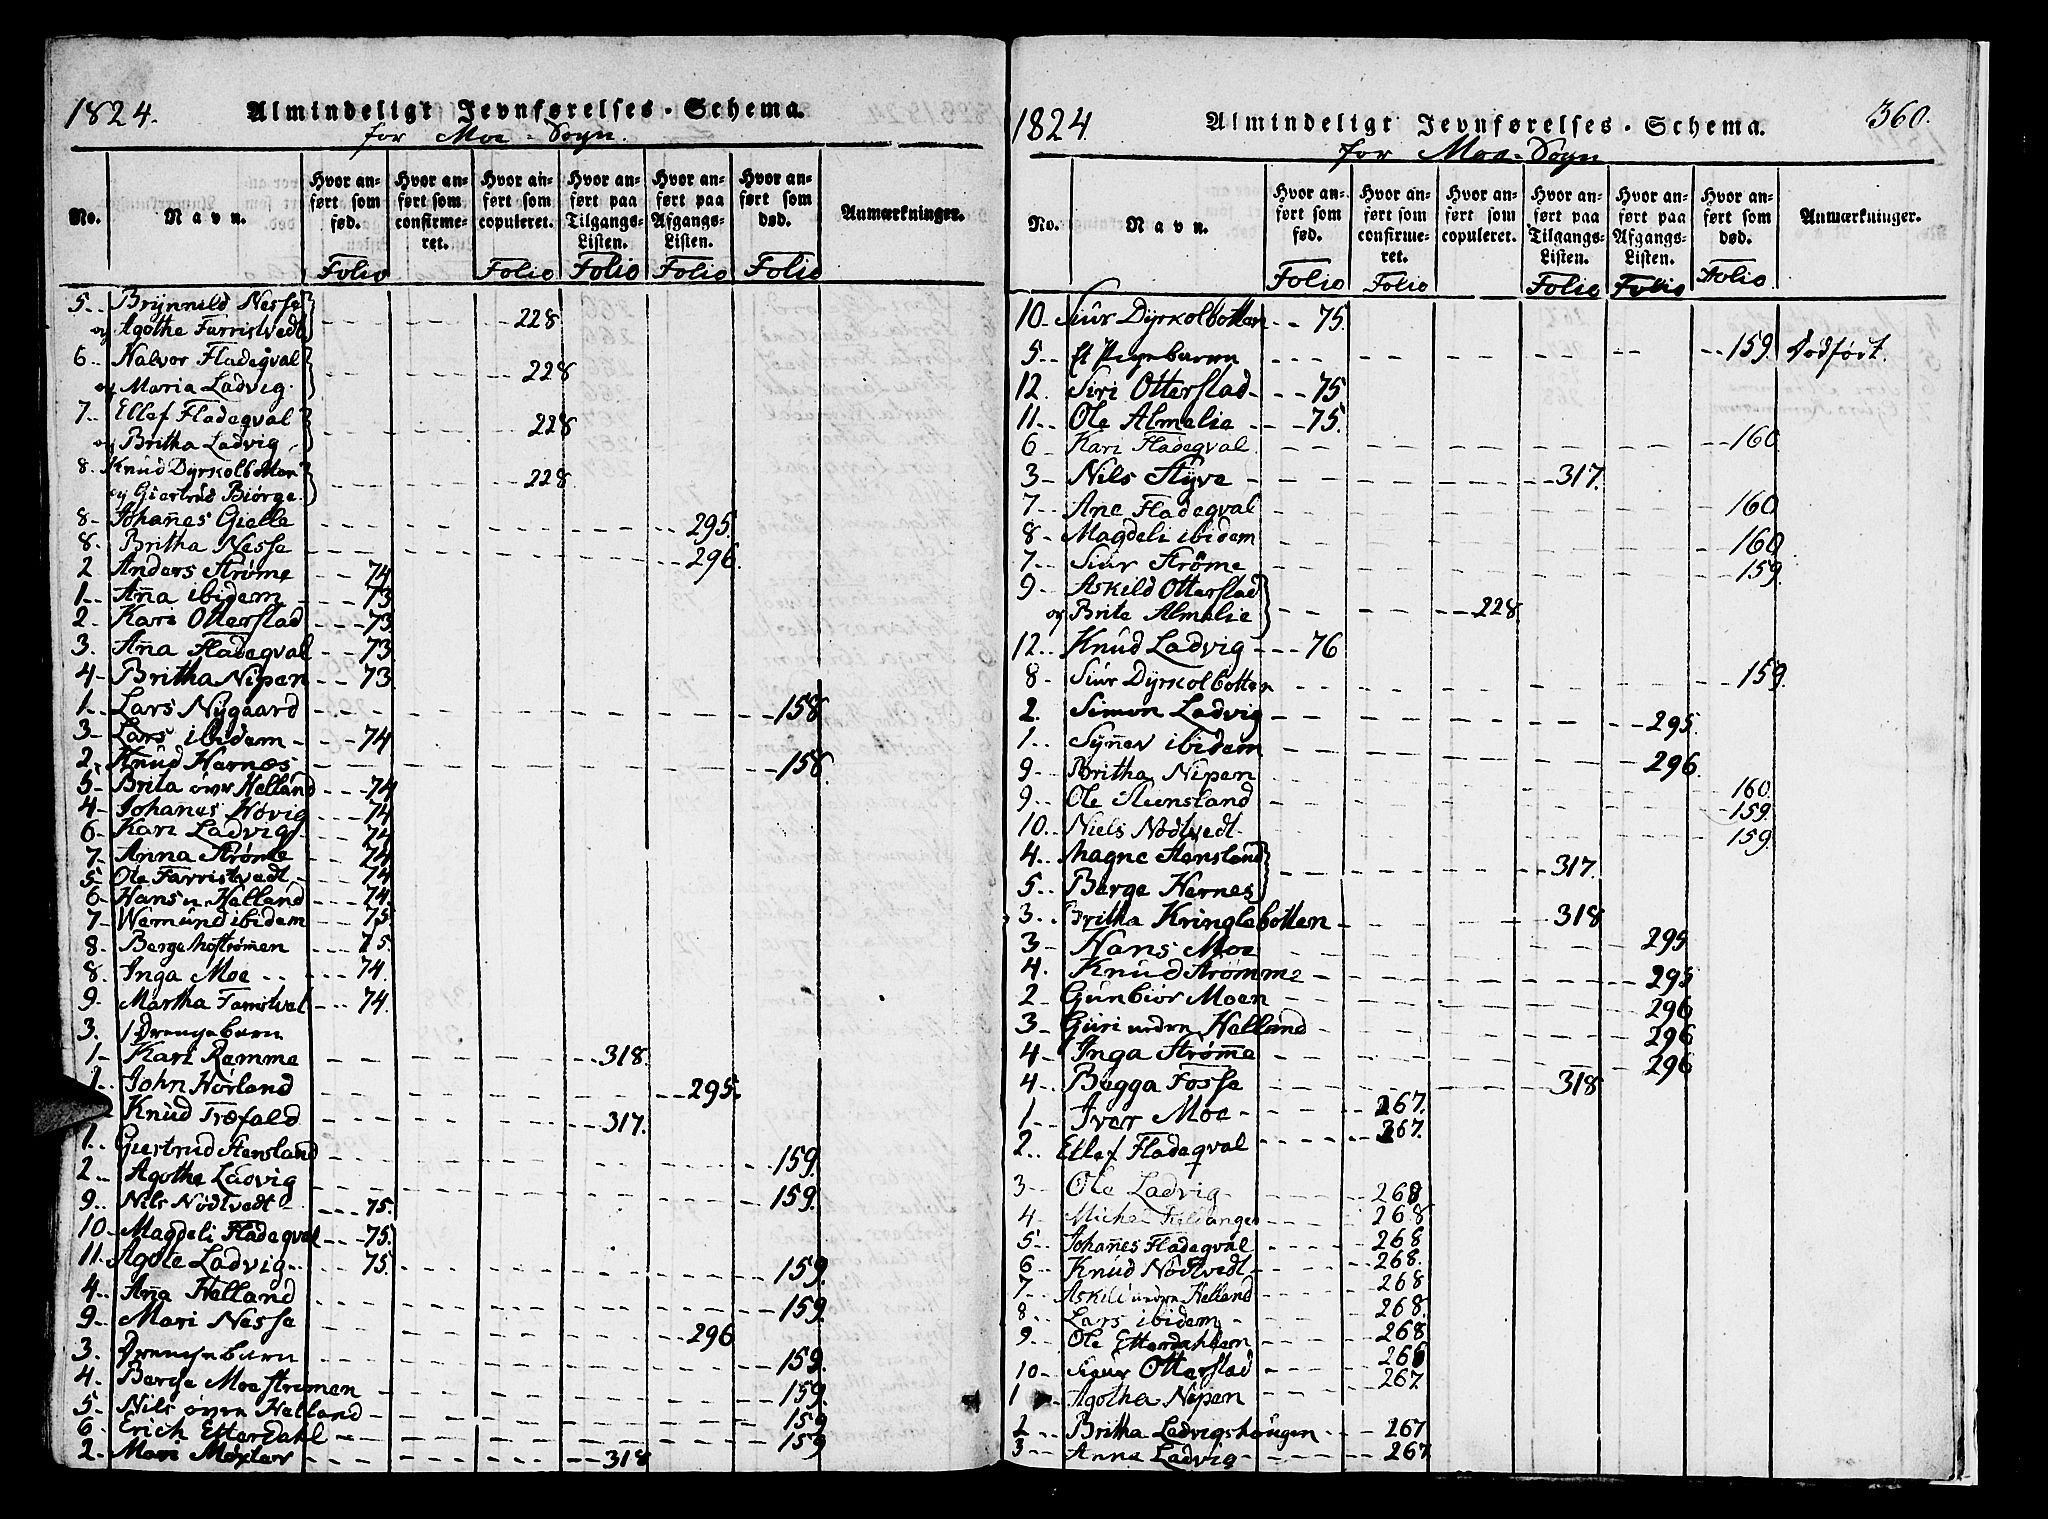 1824. Almindeligt Jevnførelses-Schema.
for Moe-Sogn.
No. Navn. Hvor anført som fød. Hvor anført som confirmeret. Hvor anført som copuleret. Hvor anført paa Tilgangs-Listen. Hvor anført paa Afgangs-Listen. Hvor anført som død. Anmærkninger.
Folio Folio Folio Folio Folio
5 Brynnild Nesse
og Agothe Farristvedt 228
6 Halvor Fladeqval
og Maria Ladvig. 228
7 Ellef Fladeqval
og Britha Ladvig 228
8 Knud Dyrkolbotten
og Giertrud Biørge 228
8 Johañes Gielle 295.
8 Britha Nesse 296.
2 Anders Strøme 74
1 Aña ibidem 73
2 Kari Otterstad 73
3 Aña Fladeqval 73
4 Britha Nipen 73
1 Lars Nygaard 158
3 Lars ibidem 74
2 Knud Harnæs 158.
5 Brita øvr Helland 74
4 Johanes Høvig 74
6 Kari Ladvig 74
7 Anna Strøme 74
5 Ole Farristvedt 74
6 Hans n Helland 74.
7 Wemund ibidem 75
8 Berge Moströmen 75
8 Inga Moe 74.
9 Martha 74.
3. Drengebarn
1 Kari Ramme 318.
1 John Hørland 295.
Knud Træfald 317.
1 Giertrud Stensland 159.
2 Agothe Ladvig 159.
9 Nils Nødtvedt 75.
10 Magdeli Fladeqval 75.
11 Agote Ladvig 75.
4 Aña Helland 159.
9 Mari Nesse 296
3 Drengebarn 159.
4 Berge Moestrømen 159.
5 Nils øvre Helland 159
6 Erich Etterdahl 159
2 Mari 318
1824 Almindeligt Jevnførelses-Schema. 360.
for Moe-Sogn
No. Navn. Hvor anført som fød. Hvor anført som confirmeret. Hvor anført som copuleret. Hvor anført paa Tilgangs-Listen. Hvor anført paa Afgangs-Listen. Hvor anført som død. Anmærkninger.
Folio Folio Folio Folio Folio
10 Siur Dyrkolbotten 75.
5 Et Pigebarn 159. Dødført.
12. Siri Otterstad 75
11 Ole Almelie 75.
6 Kari Fladeqval 160
3 Nils Styve 317.
7 Ane Fladeqval 160
8 Magdeli ibidem 160
7 Siur Ströme 159.
9 Askild Otterstad
og Brite Almelie 228.
12 Knud Ladvig 76
8 Siur Dyrkolbotten 159.
2. Simon Ladvig 295.
1 Syñev ibidem 296.
9 Britha Nipen 160.
9 Ole Stensland 159.
10 Niels Nødtvedt 159.
4 Magne Stensland 317.
5 Berge Hernes
3. Britha Kringlebotten 318
3 Hans Moe 295
4. Knud Strømme 295
2 Gunbiør Moen 296
3 Guri nedre Helland 296
4 Inga Strøme 296
4 Begga Fosse 318
1 Iver Moe 267.
2 Ellef Fladeqval 267.
3 Ole Ladvig 268
4 Michel 268
5 Johañes Fladeqval 268
6 Knud Nödtvedt 268.
7 Askild nedre Helland 268
8 Lars ibidem 268.
9 Ole Etterdahlen 268
10 Siur Otterstad 268
1 Agotha Nipen 267.
2 Britha Ladvigshougen 267
3 Anna Ladvig 267